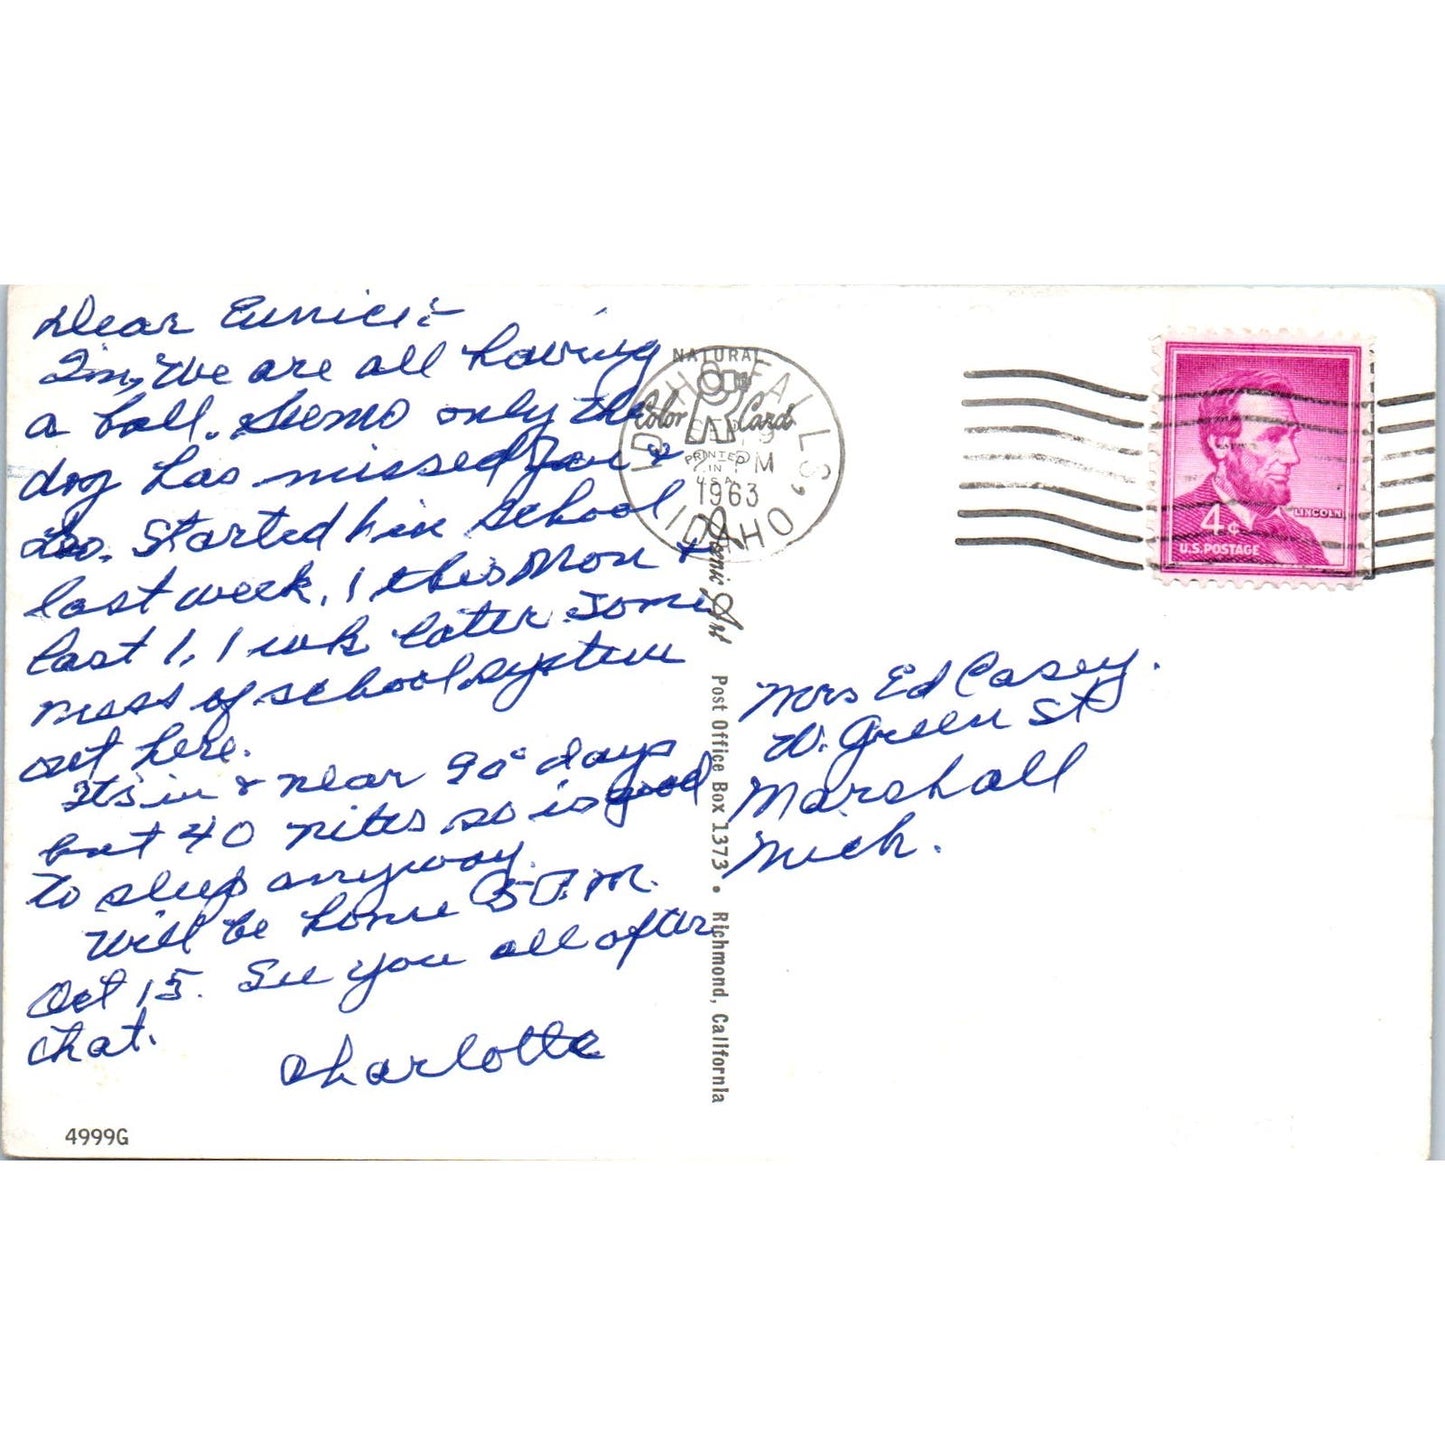 Dear Eunice:-
I'm, We are all having
a ball. Seems only the
dog has missed You &
Started in School
last week, 1 this Mon &
last 1, 1 wk later. Some
mess of school system
out here.
It's in & near 90° days
but 40 nites so is good
to sleep anyway.
Will be home P.M.
Oct 15. See you all after
that.
Charlotte
4999G
NATURAL
Color Card
PRINTED
IN
U.S.A.
IDAHO FALLS,
IDAHO
PM
1963
Scenic Art
Post Office Box 1373 • Richmond, California
4¢
LINCOLN
U.S. POSTAGE
Mrs Ed Casey.
W. Green St
Marshall
Mich.